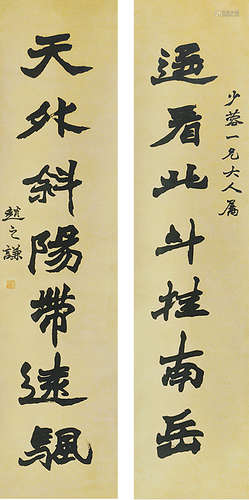 少蓉一兄大人屬
遙看北斗挂南岳
天外斜陽帶遠颿
趙之謙